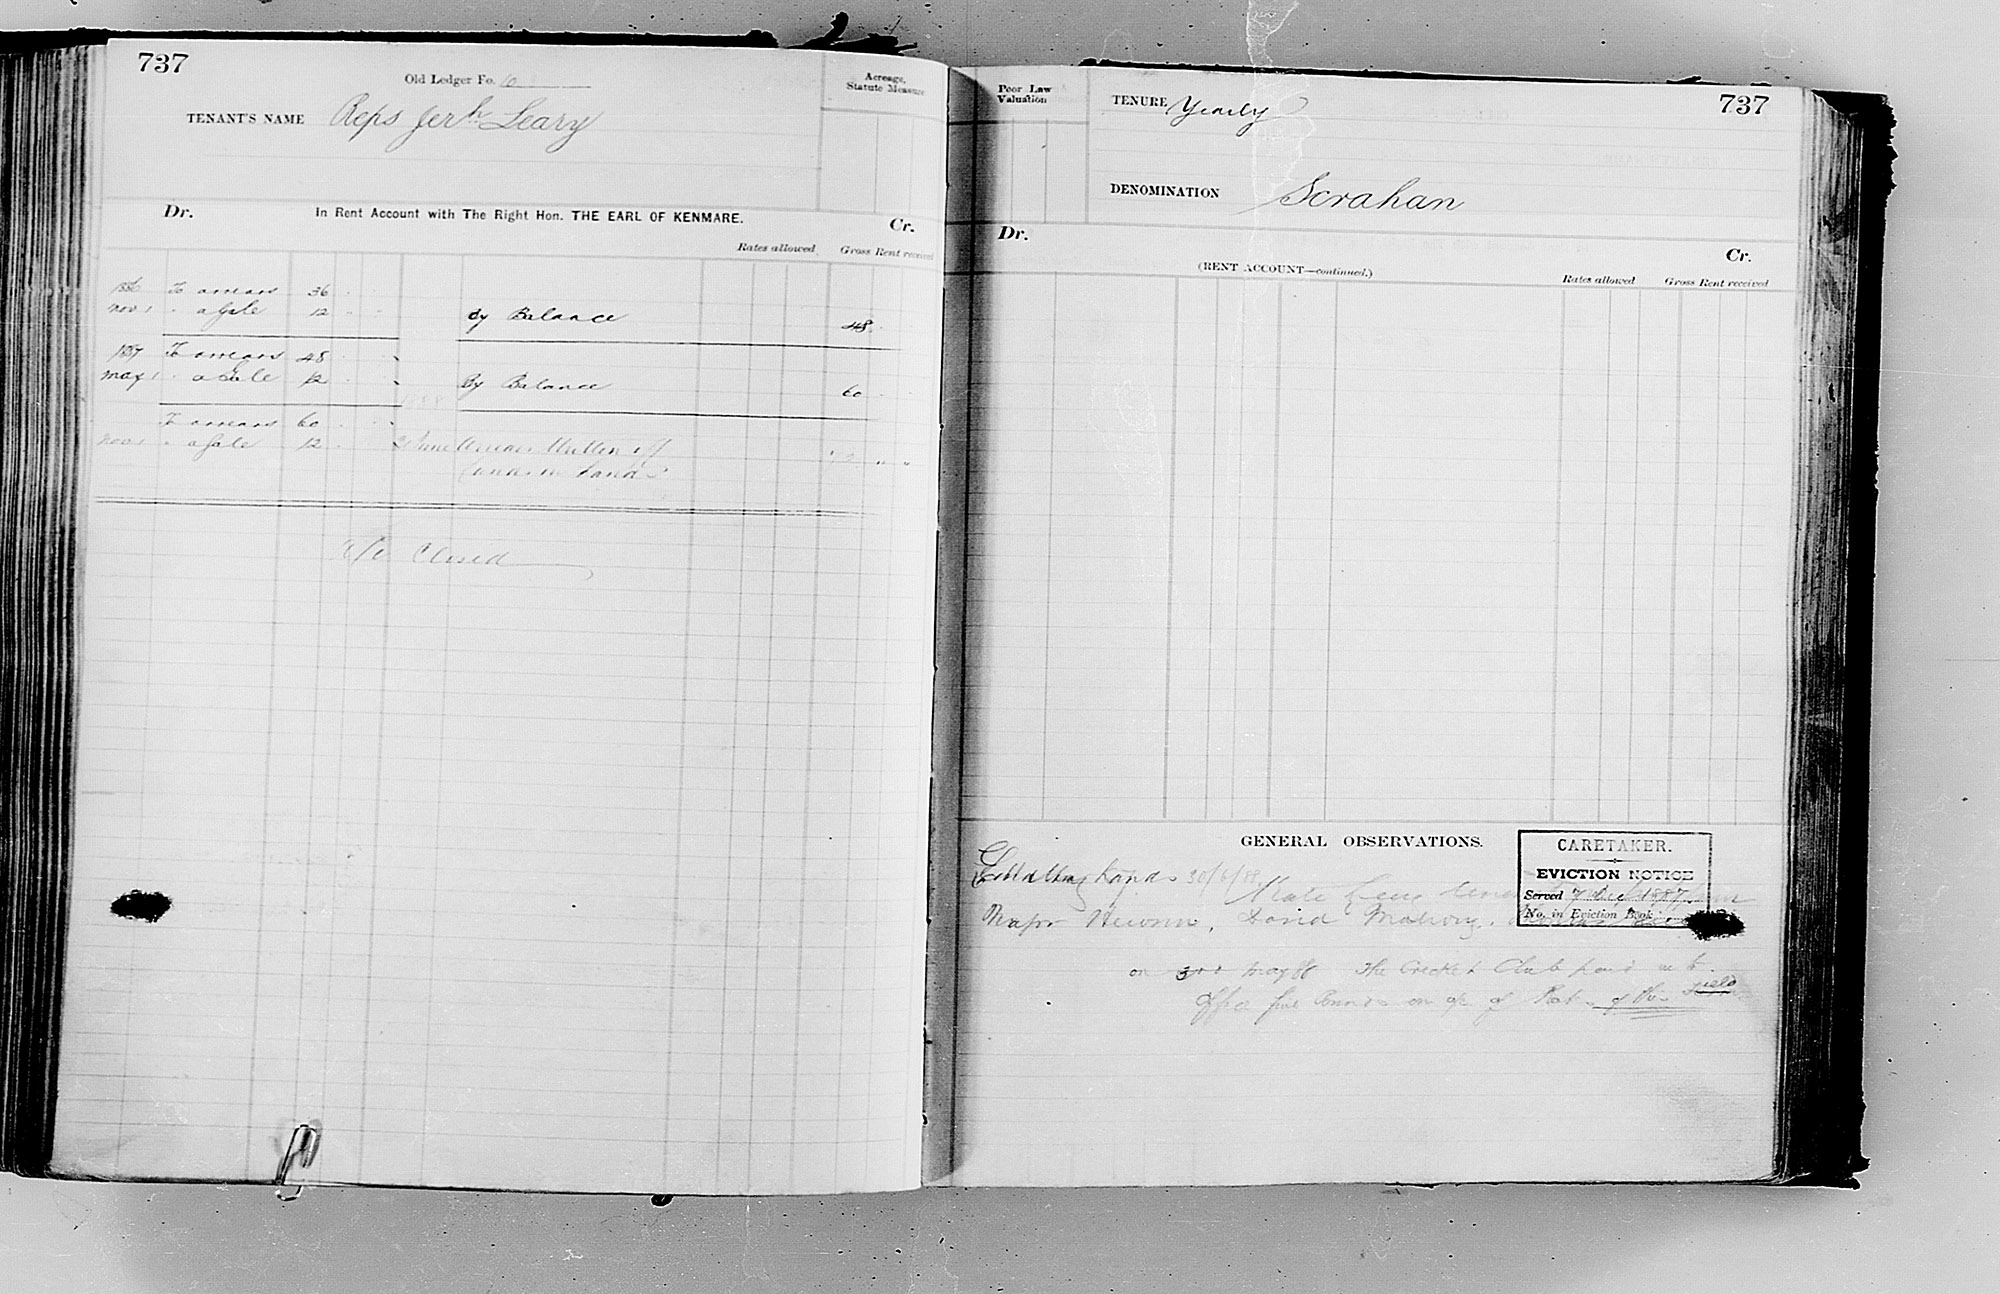 737
Old Ledger Fo. 10
Acreage,
Statute Measure
TENANT'S NAME Reps Jerh Leary
Dr. In Rent Account with The Right Hon. THE EARL OF KENMARE. Cr.
Rates allowed Gross Rent received
1886 To arrears 36
Nov 1 " a Gale 12 By Balance 48
1887 To arrears 48
May 1 " a Gale 12 By Balance 60
To arrears 60
Nov 1 " a Gale 12
a/c Closed
Poor Law
Valuation
TENURE Yearly
737
DENOMINATION Scrahan
Dr. Cr.
(RENT ACCOUNT—continued.)
Rates allowed Gross Rent received
GENERAL OBSERVATIONS.
CARETAKER.
EVICTION NOTICE
Served 7 Dec 1887
No. in Eviction Book
hands 30/6/88
Major David Mahony.
on 3rd May 88 The Cricket Club paid
office five Pounds on a/c of of this Field